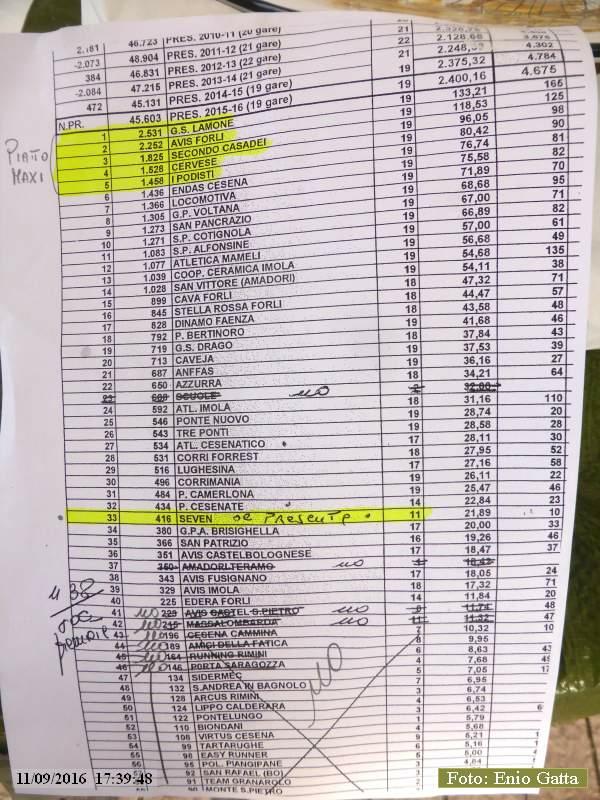 46.723 PRES. 2010-11 (20 gare) 20
2.181 48.904 PRES. 2011-12 (21 gare) 21 2.328,76
-2.073 46.831 PRES. 2012-13 (22 gare) 22 2.128,68 3.676
384 47.215 PRES. 2013-14 (21 gare) 21 2.248,33 4.302
-2.084 45.131 PRES. 2014-15 (19 gare) 19 2.375,32 4.784
472 45.603 PRES. 2015-16 (19 gare) 19 2.400,16 4.675
N.PR.
PIATTO MAXI
1 2.531 G.S. LAMONE 19 133,21 165
2 2.252 AVIS FORLI 19 118,53 125
3 1.825 SECONDO CASADEI 19 96,05 98
4 1.528 CERVESE 19 80,42 90
5 1.458 I PODISTI 19 76,74 81
6 1.436 ENDAS CESENA 19 75,58 82
7 1.366 LOCOMOTIVA 19 71,89 70
8 1.305 G.P. VOLTANA 19 68,68 95
9 1.273 SAN PANCRAZIO 19 67,00 71
10 1.271 S.P. COTIGNOLA 19 66,89 82
11 1.083 S.P. ALFONSINE 19 57,00 61
12 1.077 ATLETICA MAMELI 19 56,68 49
13 1.039 COOP. CERAMICA IMOLA 19 54,68 135
14 1.028 SAN VITTORE (AMADORI) 19 54,11 38
15 899 CAVA FORLI 18 47,32 71
16 845 STELLA ROSSA FORLI 18 44,47 57
17 828 DINAMO FAENZA 18 43,58 48
18 792 P. BERTINORO 19 41,68 43
19 719 G.S. DRAGO 18 37,84 43
20 713 CAVEJA 19 37,53 39
21 687 ANFFAS 19 36,16 27
22 650 AZZURRA 18 34,21 64
23 608 SCUOLE NO 2 32,00
24 592 ATL. IMOLA 18 31,16 110
25 546 PONTE NUOVO 19 28,74 20
26 543 TRE PONTI 18 28,58 28
27 534 ATL. CESENATICO 17 28,11 30
28 531 CORRI FORREST 18 27,95 52
29 516 LUGHESINA 17 27,16 58
30 496 CORRIMANIA 19 26,11 22
31 484 P. CAMERLONA 19 25,47 46
32 434 P. CESENATE 14 22,84 23
33 416 SEVEN SE PRESENTE 11 21,89 10
34 380 G.P.A. BRISIGHELLA 17 20,00 33
35 366 SAN PATRIZIO 16 19,26 46
36 351 AVIS CASTELBOLOGNESE 17 18,47 37
37 350 AMADORI TERAMO NO 4 18,42
38 343 AVIS FUSIGNANO 17 18,05 24
39 329 AVIS IMOLA 18 17,32 71
40 225 EDERA FORLI 14 11,84 20
N 38
41 NO 223 AVIS CASTEL S.PIETRO NO 9 11,74 48
42 NO 215 MASSALOMBARDA NO 11 11,32 47
43 NO 196 CESENA CAMMINA 7 10,32 10
44 NO 189 AMICI DELLA FATICA 8 9,95
45 NO 164 RUNNING RIMINI 6 8,63 43
46 NO 146 PORTA SARAGOZZA NO 4 7,68 49
47 134 SIDERMEC 5 7,05
48 132 S.ANDREA IN BAGNOLO 7 6,95
49 128 ARCUS RIMINI 3 6,74
50 124 LIPPO CALDERARA 4 6,53
51 122 PONTELUNGO 3 6,42
52 110 BIONDANI 1 5,79
53 108 VIRTUS CESENA 5,68
54 99 TARTARUGHE 9 5,21
98 EASY RUNNER 6 5,16
95 POL. PIANGIPANE 5 5,00
92 SAN RAFAEL (BO) 4,84
91 TEAM GRANAROLO
90 MONTE S.PIETRO
11/09/2016 17:39:48
Foto: Enio Gatta